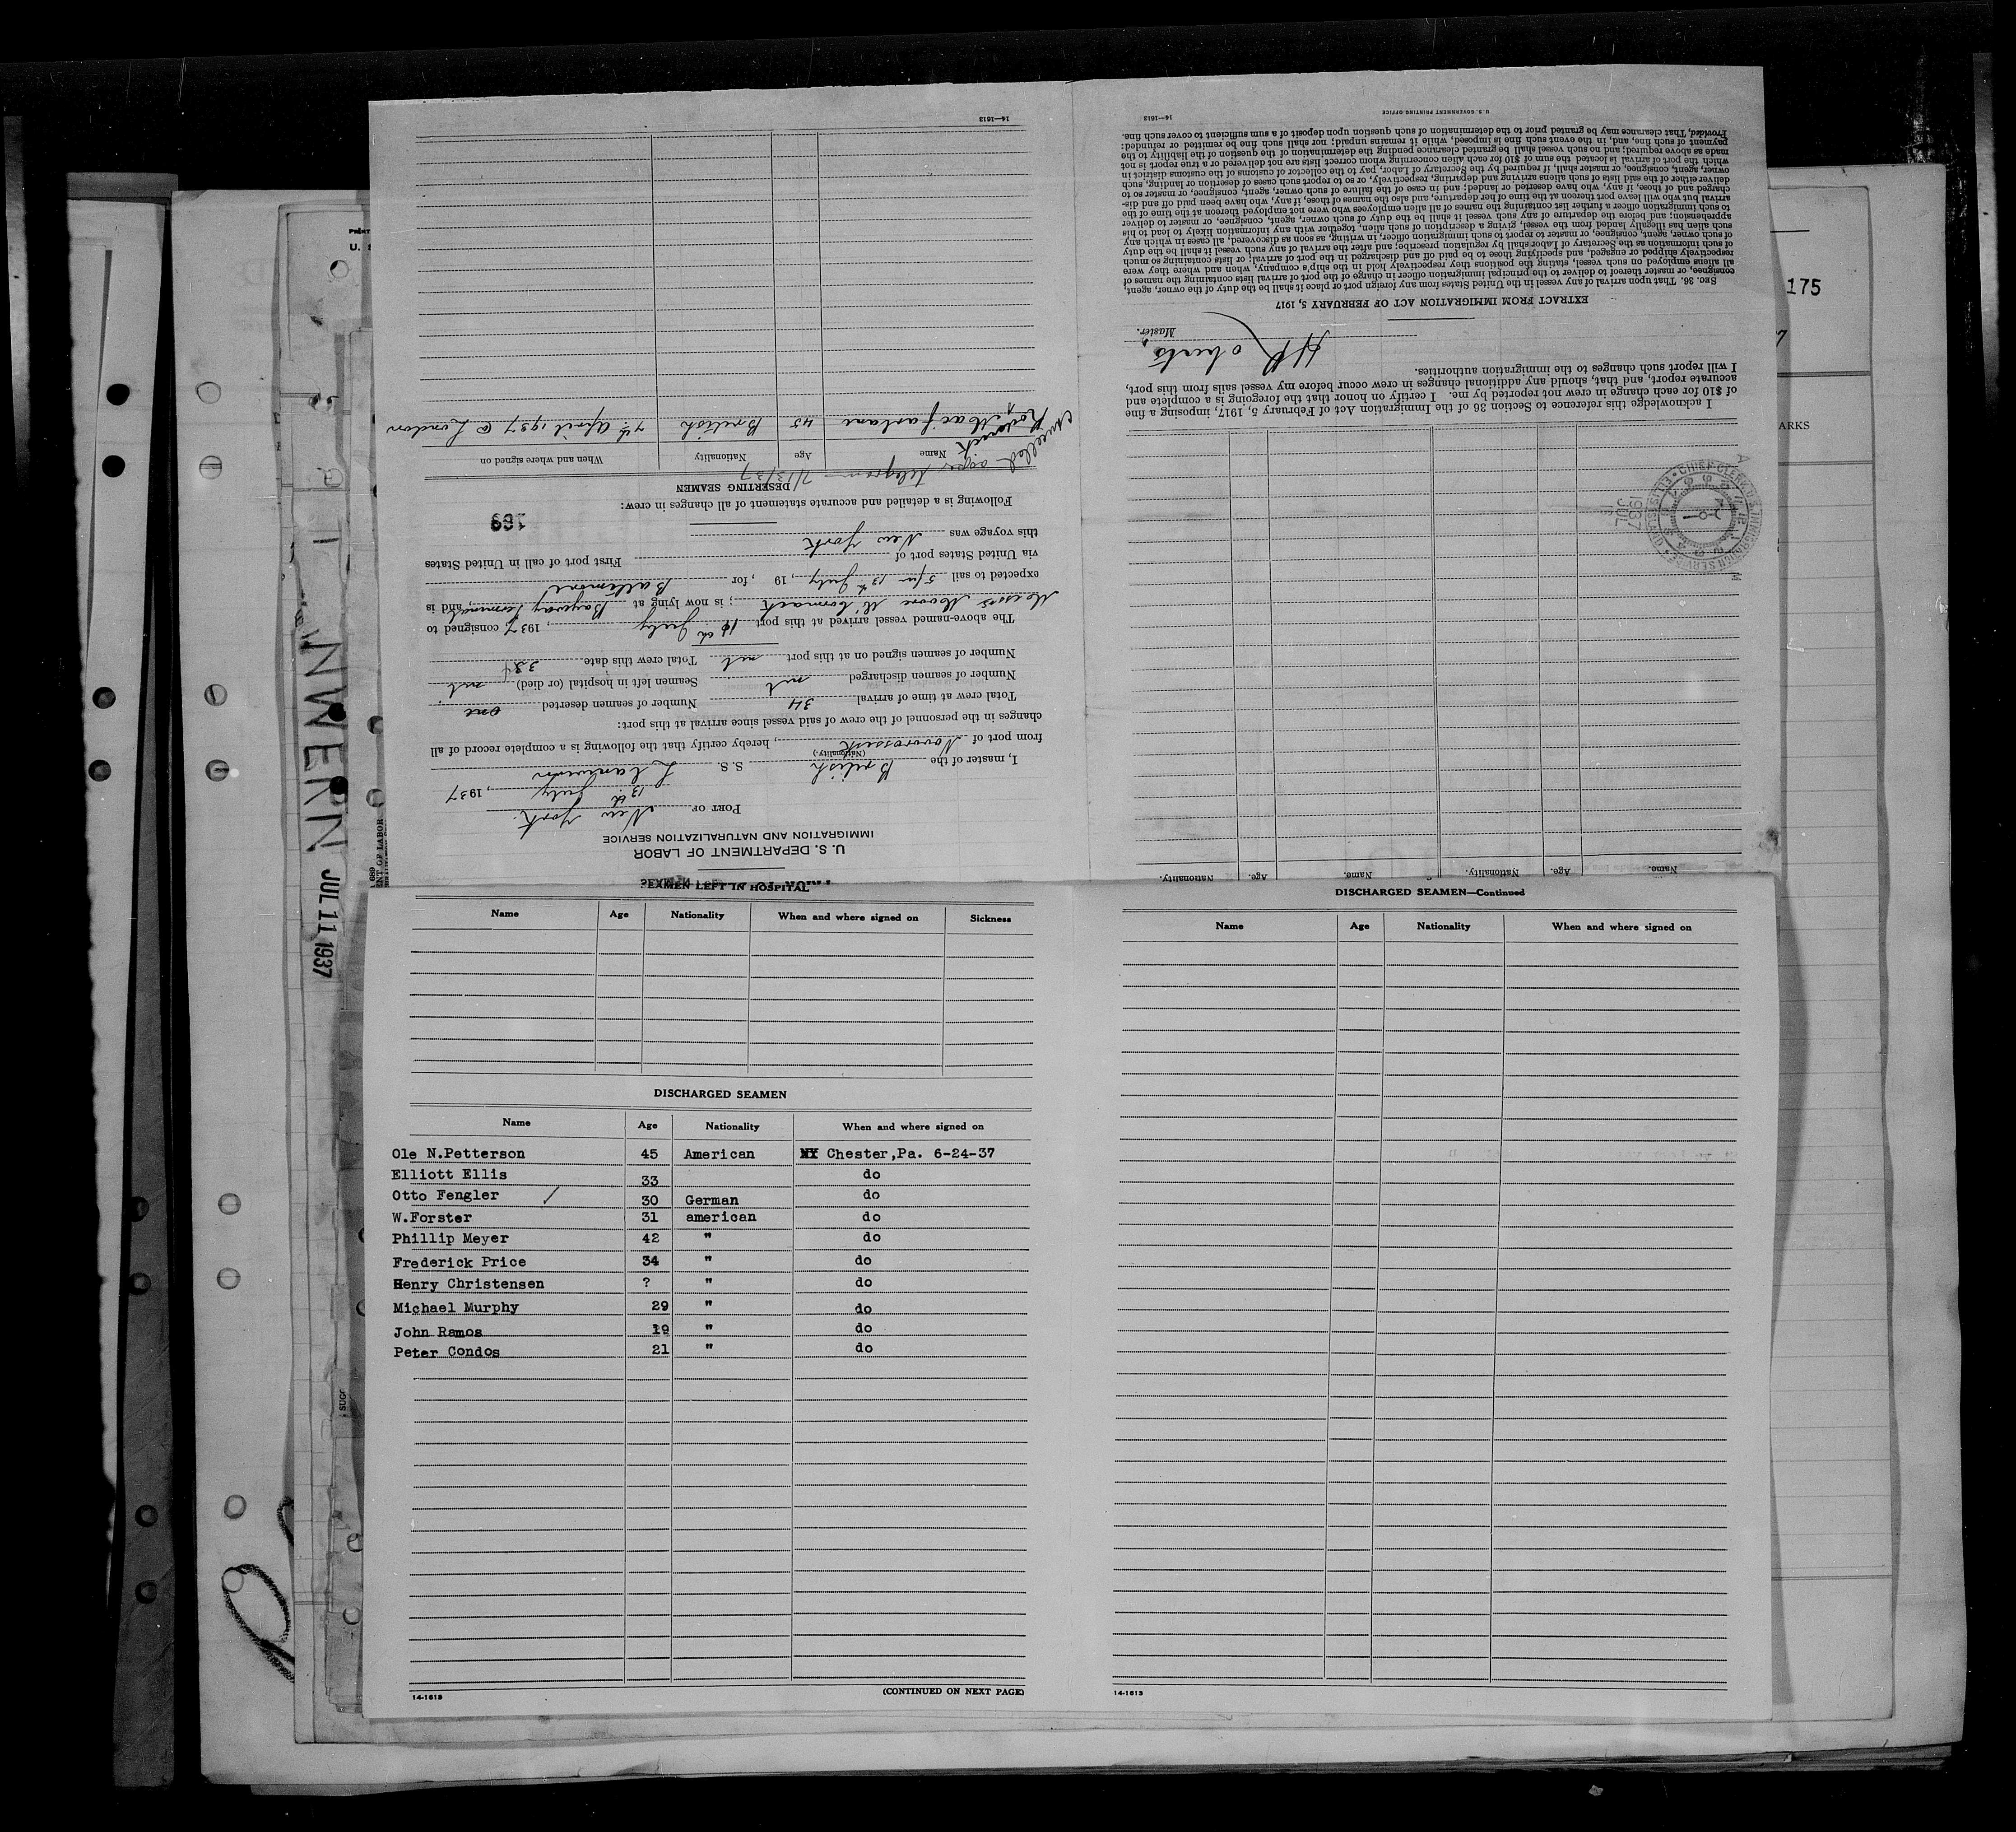 175
ARKS
U. S. DEPARTMENT OF LABOR
IMMIGRATION AND NATURALIZATION SERVICE
PORT OF New York.
13th July, 1937
I, master of the British S. S. Llanwern
(Nationality.)
from port of Novorossisk, hereby certify that the following is a complete record of all
changes in the personnel of the crew of said vessel since arrival at this port:
Total crew at time of arrival 34 Number of seamen deserted one
Number of seamen discharged nil Seamen left in hospital (or died) nil
Number of seamen signed on at this port nil Total crew this date
The above-named vessel arrived at this port July, 1937 consigned to
Messrs Moore McCormack; is now lying at Bayway Terminal, and is
expected to sail 5 pm 13th July, 19 , for Baltimore
via United States port of First port of call in United States
this voyage was New York
169
Following is a detailed and accurate statement of all changes in crew:
DESERTING SEAMEN
Cancelled as per telegram 7/13/37
Name Age Nationality When and where signed on
Roderick Macfarlane 45 British 7th April 1937 @ London
14—1613
Name. Age. Nationality. Name. Age. Nationality.
I acknowledge this reference to Section 36 of the Immigration Act of February 5, 1917, imposing a fine
of $10 for each change in crew not reported by me. I certify on honor that the foregoing is a complete and
accurate report, and that, should any additional changes in crew occur before my vessel sails from this port,
I will report such changes to the immigration authorities.
Roberts
Master.
EXTRACT FROM IMMIGRATION ACT OF FEBRUARY 5, 1917
SEC. 36. That upon arrival of any vessel in the United States from any foreign port or place it shall be the duty of the owner, agent,
consignee, or master thereof to deliver to the principal immigration officer in charge of the port of arrival lists containing the names of
all aliens employed on such vessel, stating the positions they respectively hold in the ship's company, when and where they were
respectively shipped or engaged, and specifying those to be paid off and discharged in the port of arrival; or lists containing so much
of such information as the Secretary of Labor shall by regulation prescribe; and after the arrival of any such vessel it shall be the duty
of such owner, agent, consignee, or master to report to such immigration officer, in writing, as soon as discovered, all cases in which any
such alien has illegally landed from the vessel, giving a description of such alien, together with any information likely to lead to his
apprehension; and before the departure of any such vessel it shall be the duty of such owner, agent, consignee, or master to deliver
to such immigration officer a further list containing the names of all alien employees who were not employed thereon at the time of the
arrival but who will leave port thereon at the time of her departure, and also the names of those, if any, who have been paid off and dis-
charged and of those, if any, who have deserted or landed; and in case of the failure of such owner, agent, consignee, or master so to
deliver either of the said lists of such aliens arriving and departing, respectively, or so to report such cases of desertion or landing, such
owner, agent, consignee, or master shall, if required by the Secretary of Labor, pay to the collector of customs of the customs district in
which the port of arrival is located the sum of $10 for each alien concerning whom correct lists are not delivered or a true report is not
made as above required; and no such vessel shall be granted clearance pending the determination of the question of the liability to the
payment of such fine, and, in the event such fine is imposed, while it remains unpaid; nor shall such fine be remitted or refunded:
Provided, That clearance may be granted prior to the determination of such question upon deposit of a sum sufficient to cover such fine.
14—1613 U.S. GOVERNMENT PRINTING OFFICE
NWERN JUL 11 1937
SEAMEN LEFT IN HOSPITAL
Name Age Nationality When and where signed on Sickness
DISCHARGED SEAMEN
Name Age Nationality When and where signed on
Ole N.Petterson 45 American Chester,Pa. 6-24-37
Elliott Ellis 33 do
Otto Fengler 30 German do
W.Forster 31 american do
Phillip Meyer 42 " do
Frederick Price 34 " do
Henry Christensen ? " do
Michael Murphy 29 " do
John Ramos 19 " do
Peter Condos 21 " do
14-1613 (CONTINUED ON NEXT PAGE)
DISCHARGED SEAMEN—Continued
Name Age Nationality When and where signed on
14-1613